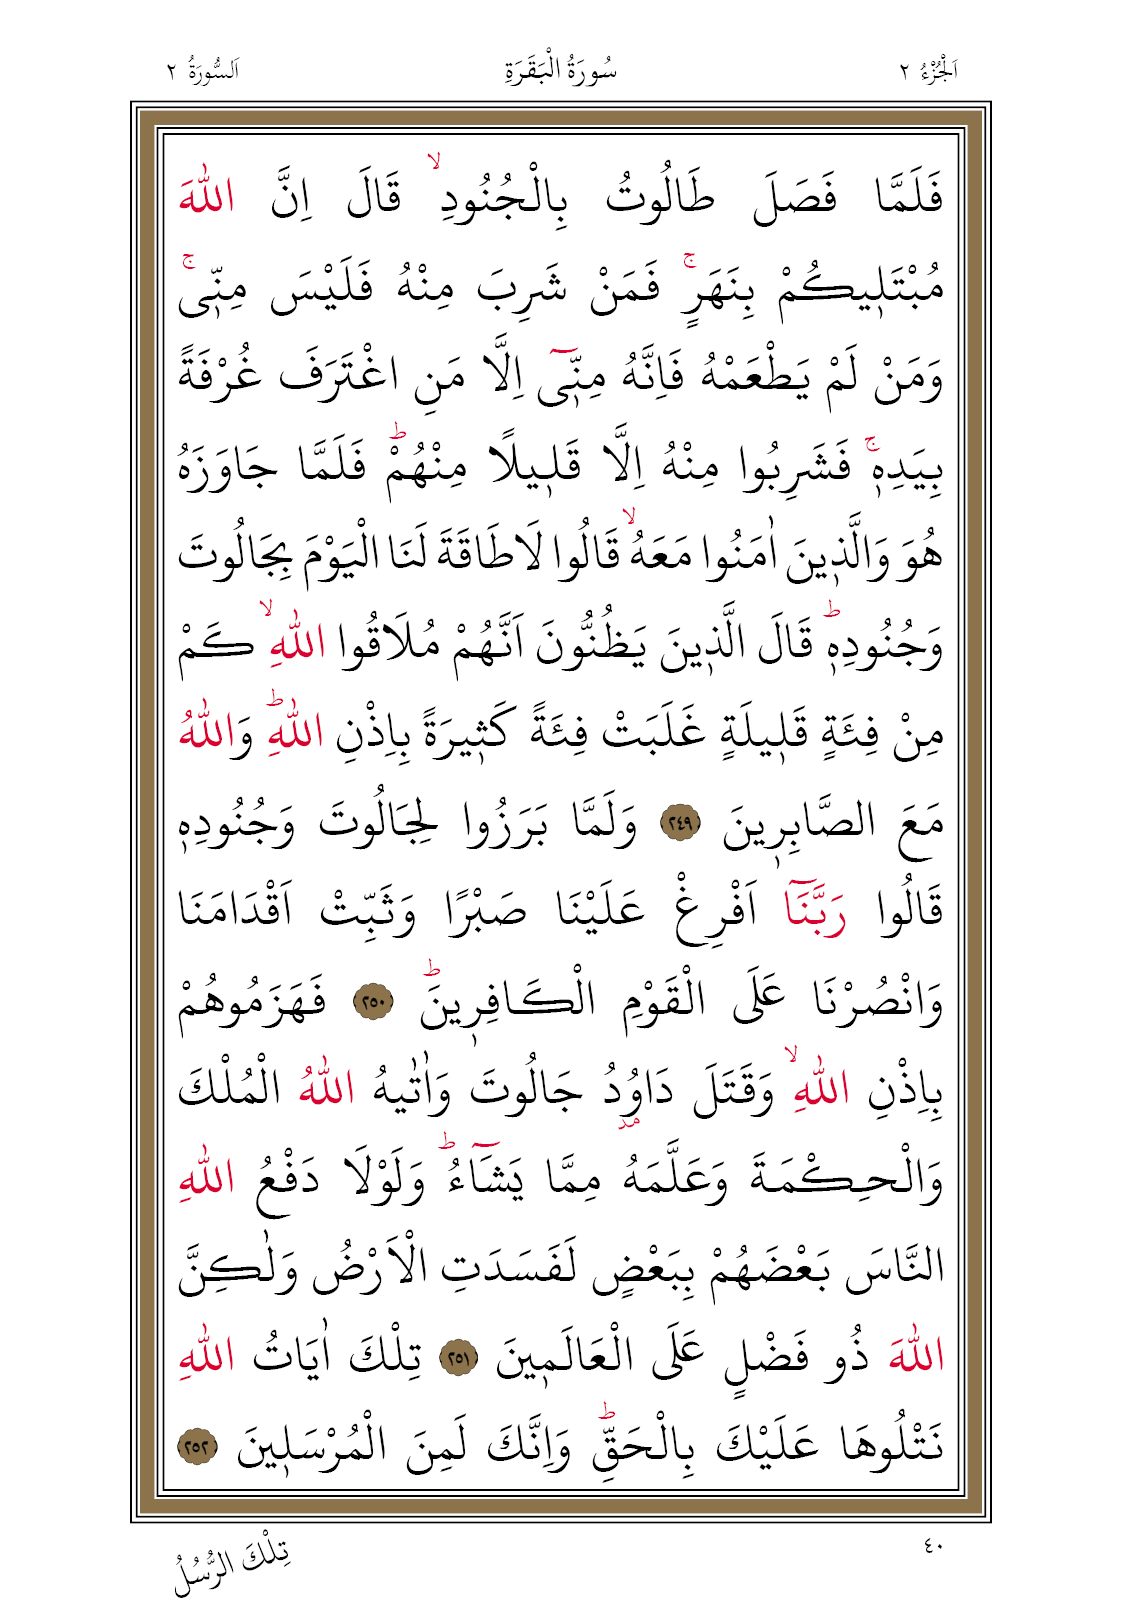 اَلْجُزْءُ ٢ سُورَةُ الْبَقَرَةِ اَلسُّورَةُ ٢
فَلَمَّا فَصَلَ طَالُوتُ بِالْجُنُودِۙ قَالَ اِنَّ اللّٰهَ
مُبْتَلٖيكُمْ بِنَهَرٍۚ فَمَنْ شَرِبَ مِنْهُ فَلَيْسَ مِنّٖيۚ
وَمَنْ لَمْ يَطْعَمْهُ فَاِنَّهُ مِنّٖٓي اِلَّا مَنِ اغْتَرَفَ غُرْفَةً
بِيَدِهٖۚ فَشَرِبُوا مِنْهُ اِلَّا قَلٖيلًا مِنْهُمْؕ فَلَمَّا جَاوَزَهُ
هُوَ وَالَّذٖينَ اٰمَنُوا مَعَهُۙ قَالُوا لَا طَاقَةَ لَنَا الْيَوْمَ بِجَالُوتَ
وَجُنُودِهٖؕ قَالَ الَّذٖينَ يَظُنُّونَ اَنَّهُمْ مُلَاقُوا اللّٰهِۙ كَمْ
مِنْ فِئَةٍ قَلٖيلَةٍ غَلَبَتْ فِئَةً كَثٖيرَةً بِاِذْنِ اللّٰهِؕ وَاللّٰهُ
مَعَ الصَّابِرٖينَ ٢٤٩ وَلَمَّا بَرَزُوا لِجَالُوتَ وَجُنُودِهٖ
قَالُوا رَبَّنَٓا اَفْرِغْ عَلَيْنَا صَبْرًا وَثَبِّتْ اَقْدَامَنَا
وَانْصُرْنَا عَلَى الْقَوْمِ الْكَافِرٖينَؕ ٢٥٠ فَهَزَمُوهُمْ
بِاِذْنِ اللّٰهِۙ وَقَتَلَ دَاوُدُ جَالُوتَ وَاٰتٰيهُ اللّٰهُ الْمُلْكَ
وَالْحِكْمَةَ وَعَلَّمَهُ مِمَّا يَشَٓاءُؕ وَلَوْلَا دَفْعُ اللّٰهِ
النَّاسَ بَعْضَهُمْ بِبَعْضٍ لَفَسَدَتِ الْاَرْضُ وَلٰكِنَّ
اللّٰهَ ذُو فَضْلٍ عَلَى الْعَالَمٖينَ ٢٥١ تِلْكَ اٰيَاتُ اللّٰهِ
نَتْلُوهَا عَلَيْكَ بِالْحَقِّؕ وَاِنَّكَ لَمِنَ الْمُرْسَلٖينَ ٢٥٢
٤٠ تِلْكَ الرُّسُلُ